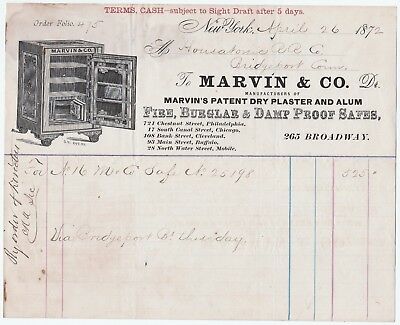 TERMS, CASH—subject to Sight Draft after 5 days.
Order Folio, 495
New York, April 26 1872
M Housatonic R R Co
Bridgeport Conn.
To MARVIN & CO. Dr.
MANUFACTURERS OF
MARVIN'S PATENT DRY PLASTER AND ALUM
FIRE, BURGLAR & DAMP PROOF SAFES,
721 Chestnut Street, Philadelphia.
17 South Canal Street, Chicago.
108 Bank Street, Cleveland.
93 Main Street, Buffalo.
28 North Water Street, Mobile.
265 BROADWAY.
MARVIN & CO.
By order of
No 16 M & Co Safe No 25198 525
Via Bridgeport Bt Thursday.